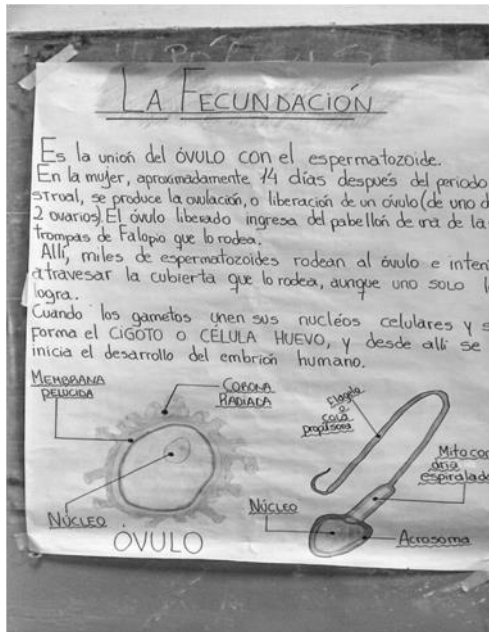 LA FECUNDACIÓN
Es la unión del óvulo con el espermatozoide.
En la mujer, aproximadamente 14 días después del periodo
strual, se produce la ovulación, o liberación de un óvulo (de uno d
2 ovarios). El óvulo liberado ingresa del pabellón de una de la
trompas de Falopio que lo rodea.
Allí, miles de espermatozoides rodean al óvulo e inten
atravesar la cubierta que lo rodea, aunque uno solo l
logra.
Cuando los gametos unen sus nucléos celulares y s
forma el CIGOTO o CÉLULA HUEVO, y desde allí se
inicia el desarrollo del embrión humano.
MEMBRANA
PELUCIDA
CORONA
RADIADA
NÚCLEO
ÓVULO
Flagelo
o
cola
propulsora
Mitocon
dria
espiralada
NÚCLEO
Acrosoma